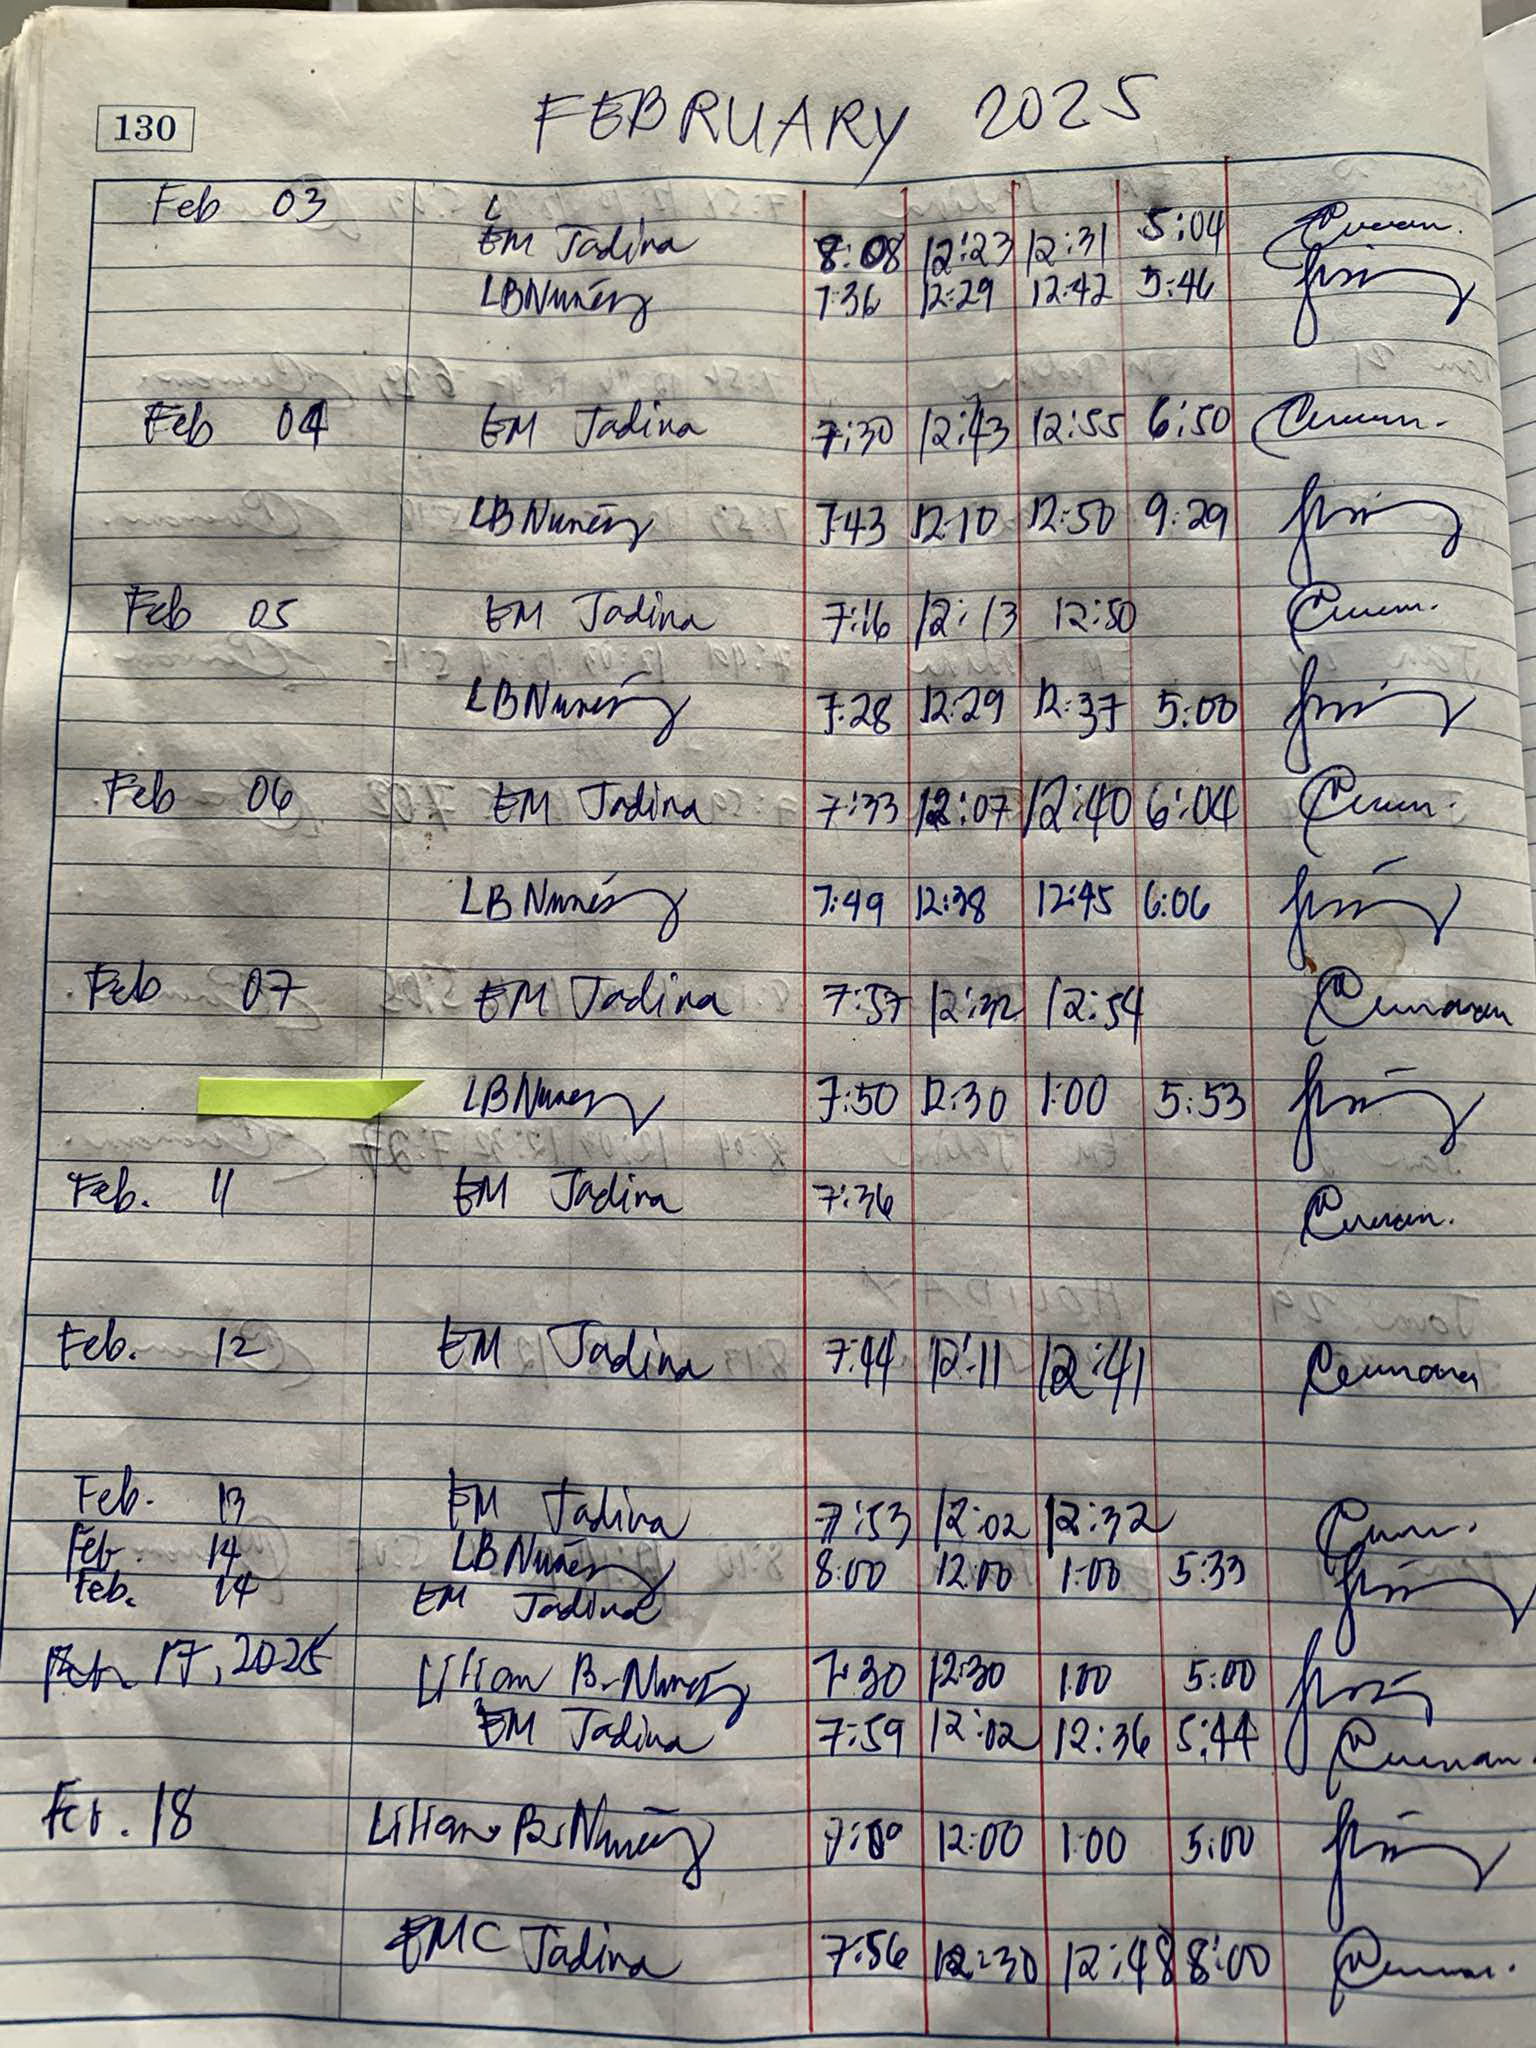 130
FEBRUARY 2025
Feb 03 L
EM Jadina 8:08 12:23 12:31 5:04
LBNuñez 7:36 12:29 12:42 5:46
Feb 04 EM Jadina 7:30 12:43 12:55 6:50
LBNuñez 7:43 12:10 12:50 9:29
Feb 05 EM Jadina 7:16 12:13 12:50
LBNuñez 7:28 12:29 12:37 5:00
Feb 06 EM Jadina 7:33 12:07 12:40 6:04
LBNuñez 7:49 12:38 12:45 6:06
Feb 07 EM Jadina 7:57 12:32 12:54
LBNuñez 7:50 12:30 1:00 5:53
Feb. 11 EM Jadina 7:36
Feb. 12 EM Jadina 7:44 12:11 12:41
Feb. 13 EM Jadina 7:53 12:02 12:32
Feb. 14 LBNuñez 8:00 12:00 1:00 5:33
Feb. 14 EM Jadina
17, 2025 Lilian B. Nuñez 7:30 12:30 1:00 5:00
EM Jadina 7:59 12:02 12:36 5:44
Feb. 18 Lilian B. Nuñez 12:00 1:00 5:00
EMC Jadina 7:56 12:30 12:48 8:00